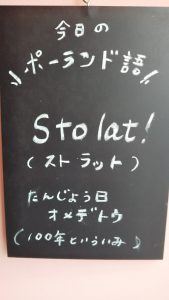 今日の
ポーランド語
Sto lat!
(ストラット)
たんじょう日
オメデトウ
(100年といういみ)